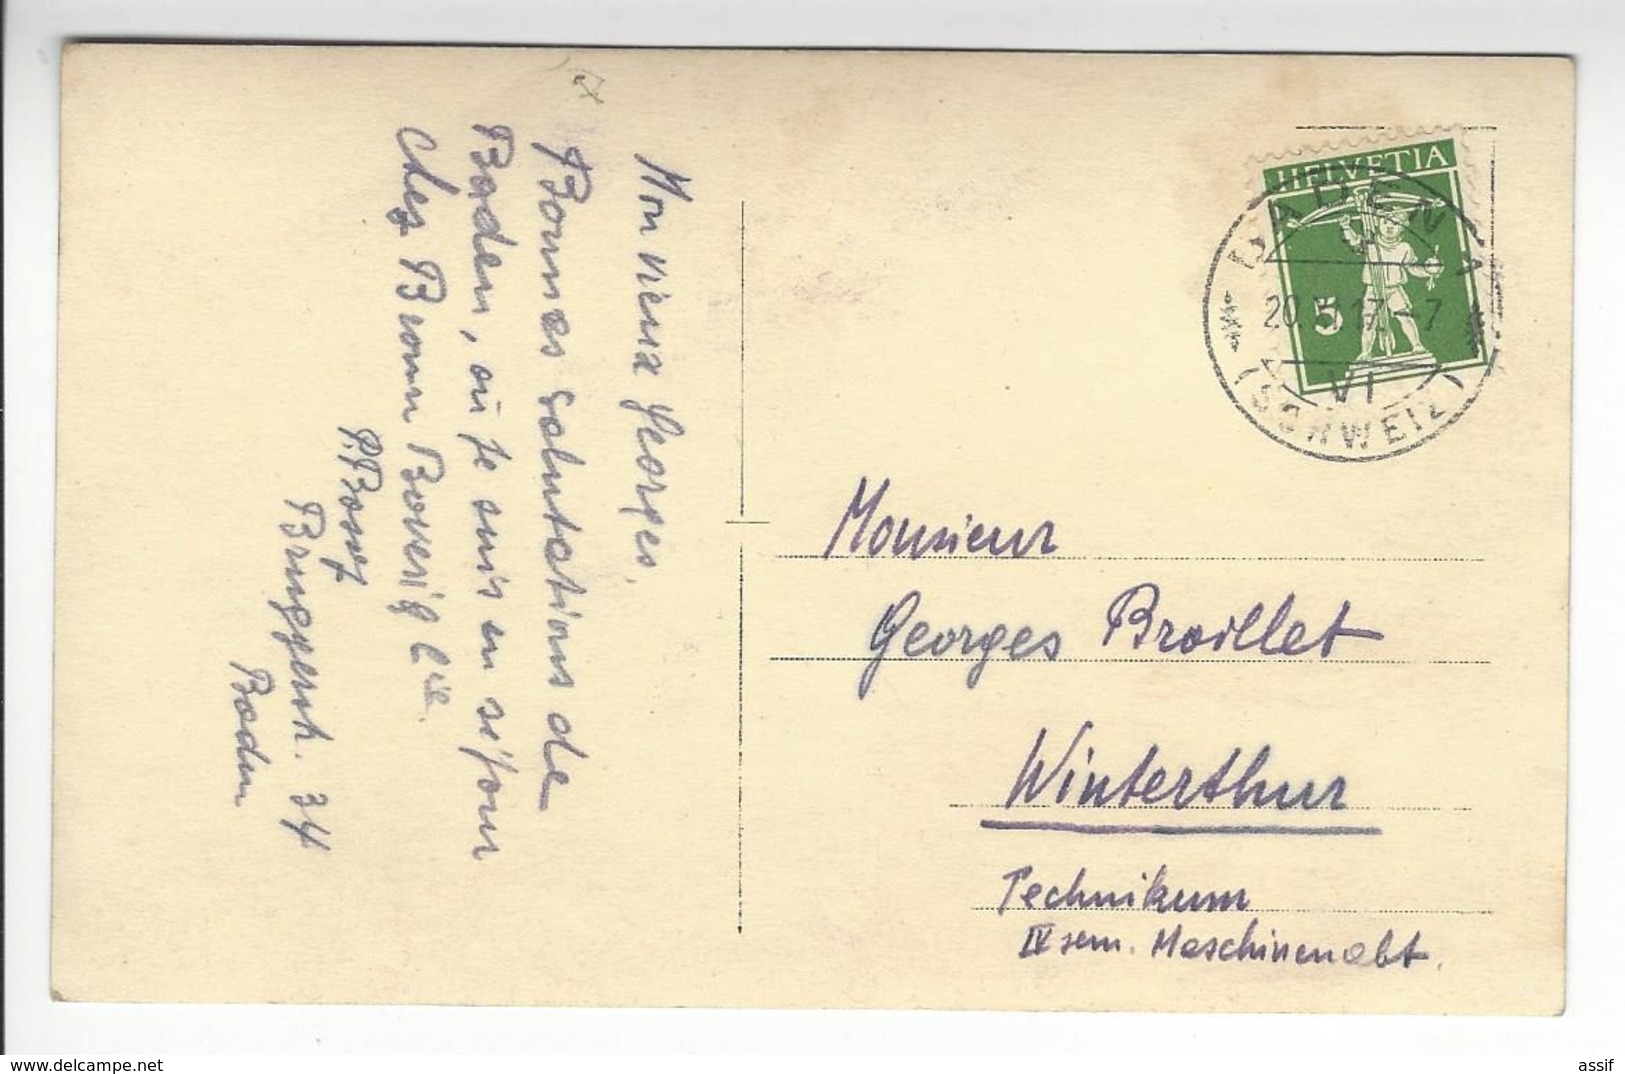 Mon vieux Georges,
Bonnes salutations de
Baden, où je suis en séjour
chez Brown Boveri & Cie.
P. Bonez
Bruggerstr. 34
Baden
HELVETIA
5
BADEN
20. 17. -7
VI
(SCHWEIZ)
Monsieur
Georges Broillet
Winterthur
Technikum
IV sem. Maschinenabt.
www.delcampe.net
assif